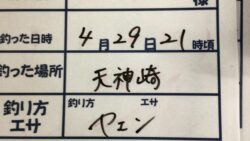 様
釣った日時 4月29日21時頃
釣った場所 天神崎
釣り方 エサ 釣り方 エサ
ヤエン